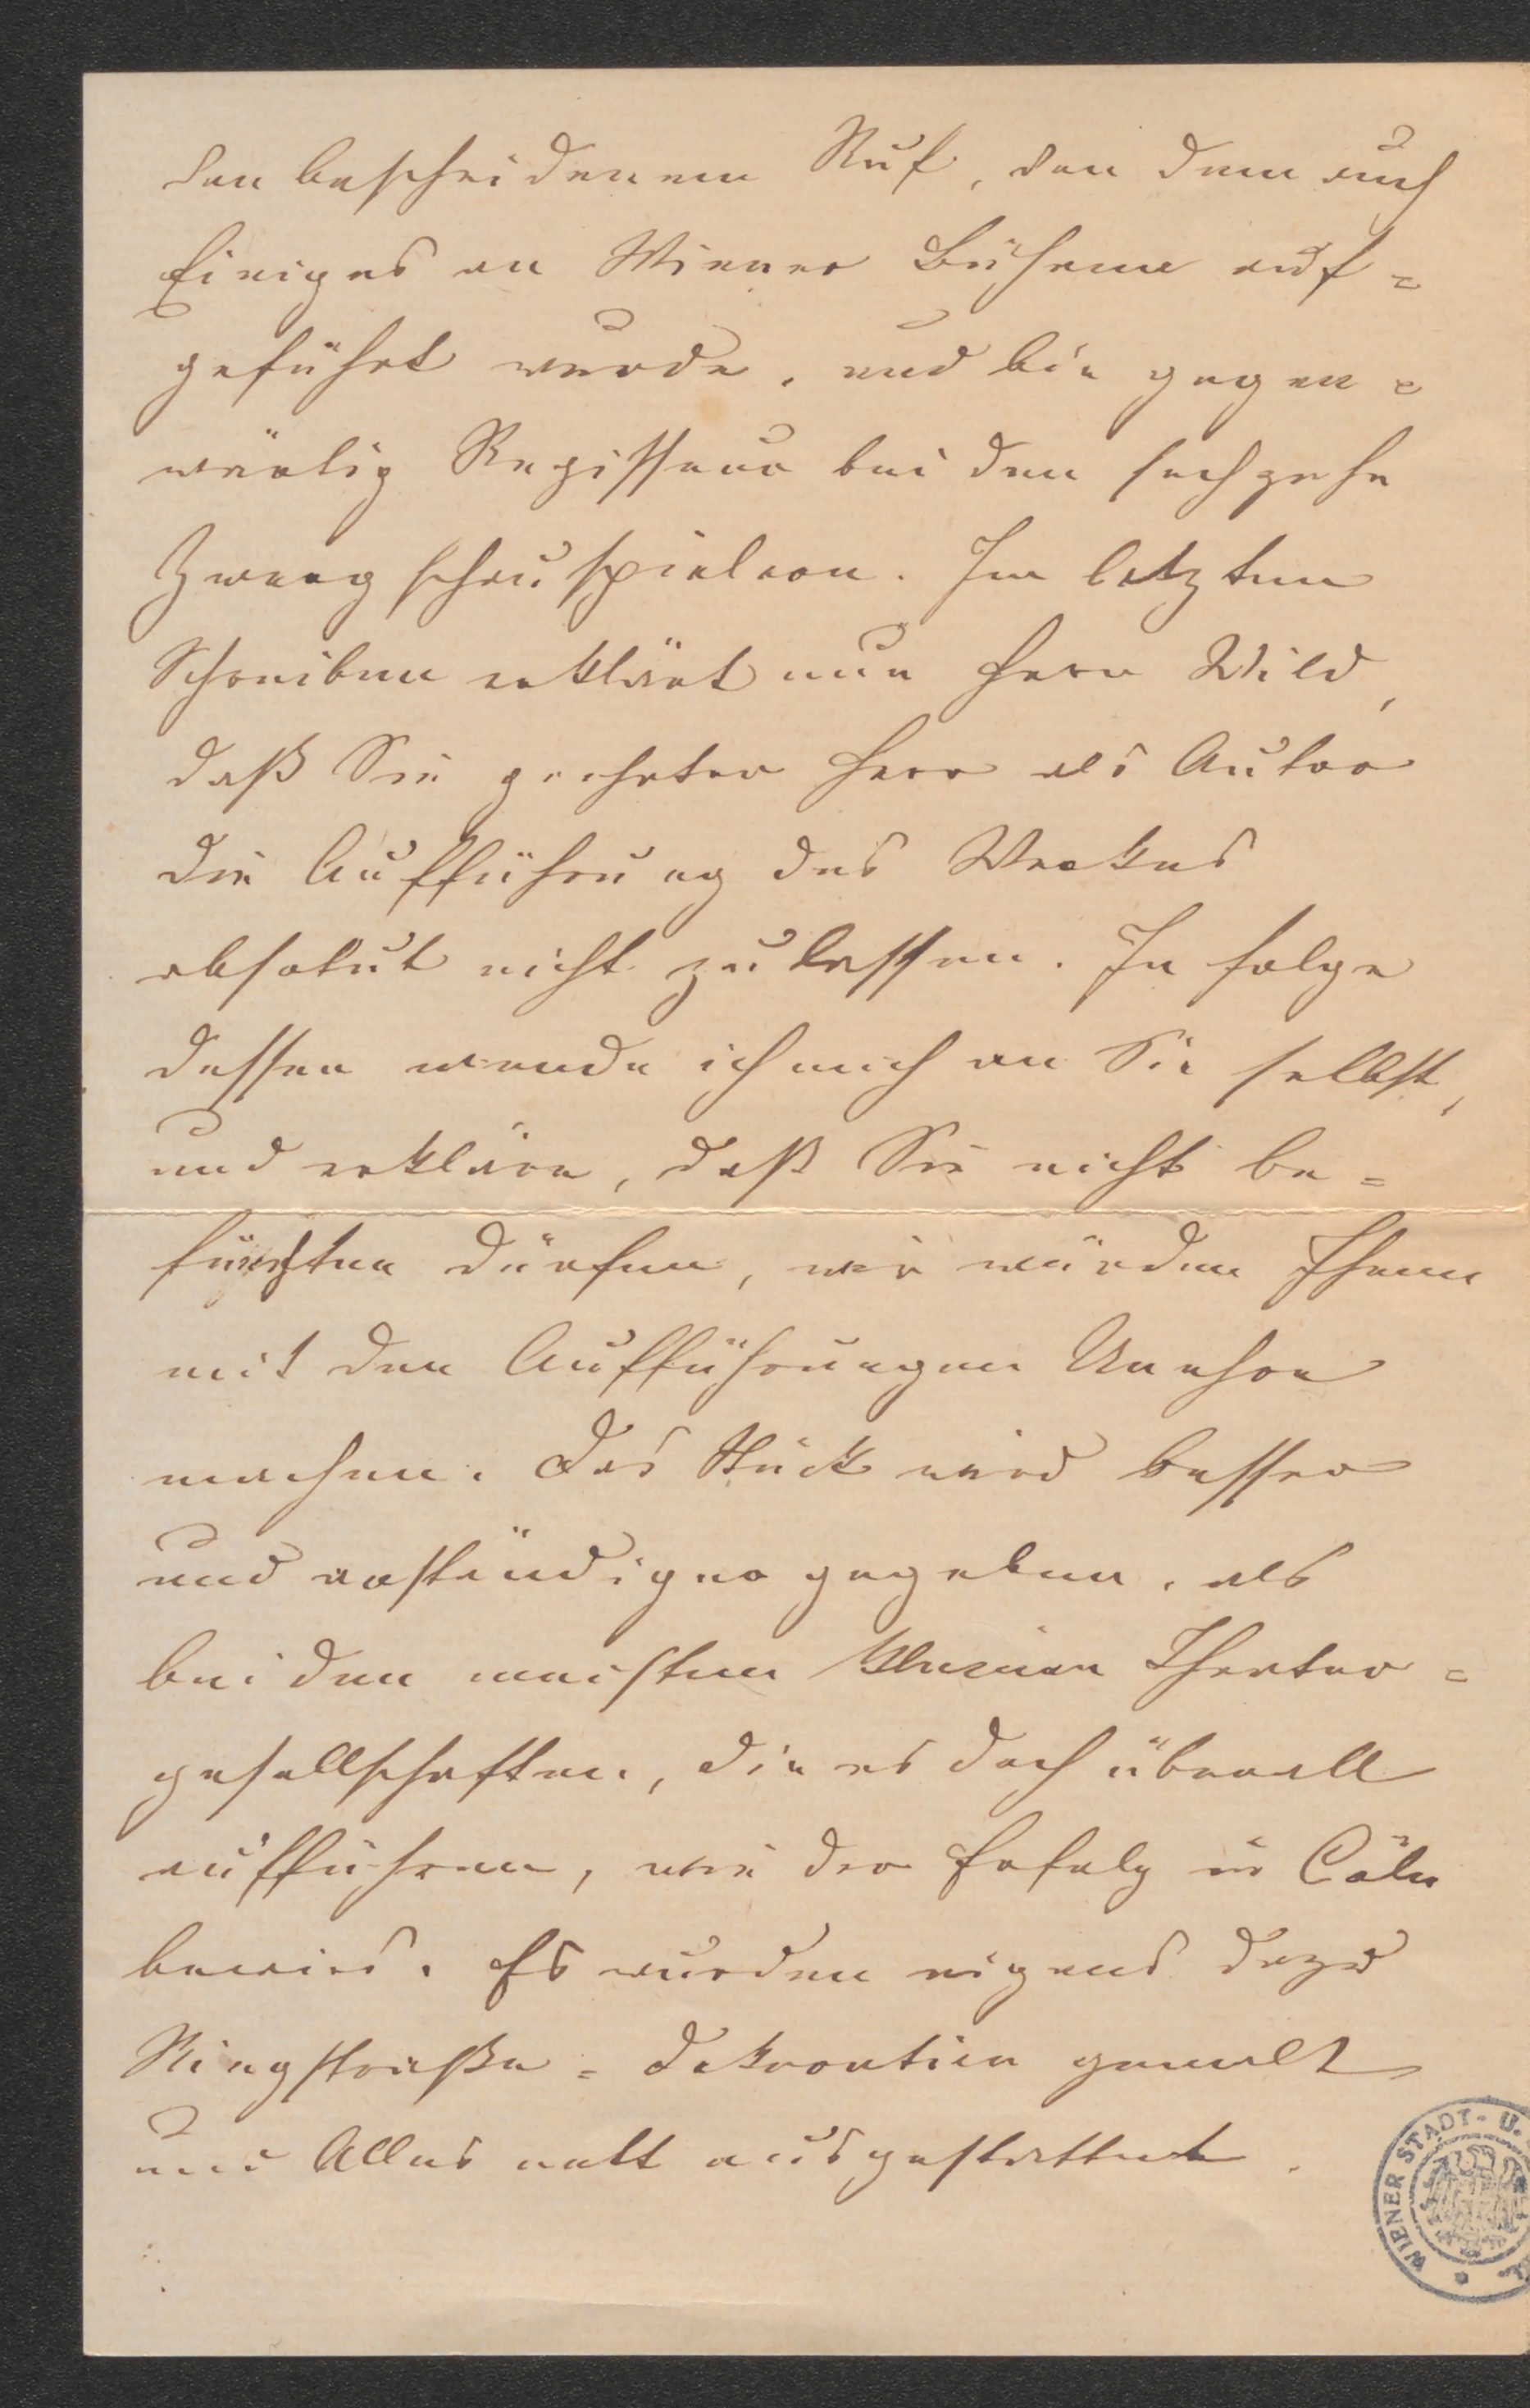 von bescheidenem Ruf, von dem auch
Einiges an Wiener Bühnen auf=
geführt wurde, und bin gegen=
wärtig Regisseur bei den sechzehn
Zwergschauspielern. Im letzten
Schreiben erklärt nun Herr Wild,
daß Sie geehrter Herr als Autor
die Aufführung des Werkes
absolut nicht zulassen. In folge
dessen wende ich mich an Sie selbst,
und erkläre, daß Sie nicht be=
fürchten dürfen, wir würden Ihnen
mit den Aufführungen Unehre
machen. Das Stück wird besser
und anständiger gegeben, als
bei den meisten kleinen Theater=
gesellschaften, die es doch überall
aufführen, wie der Erfolg in Cöln
bewies. Es wurden eigens dazu
Ringstraße=Dekoration gemalt
und Alles nett ausgestattet.
WIENER STADT- U.